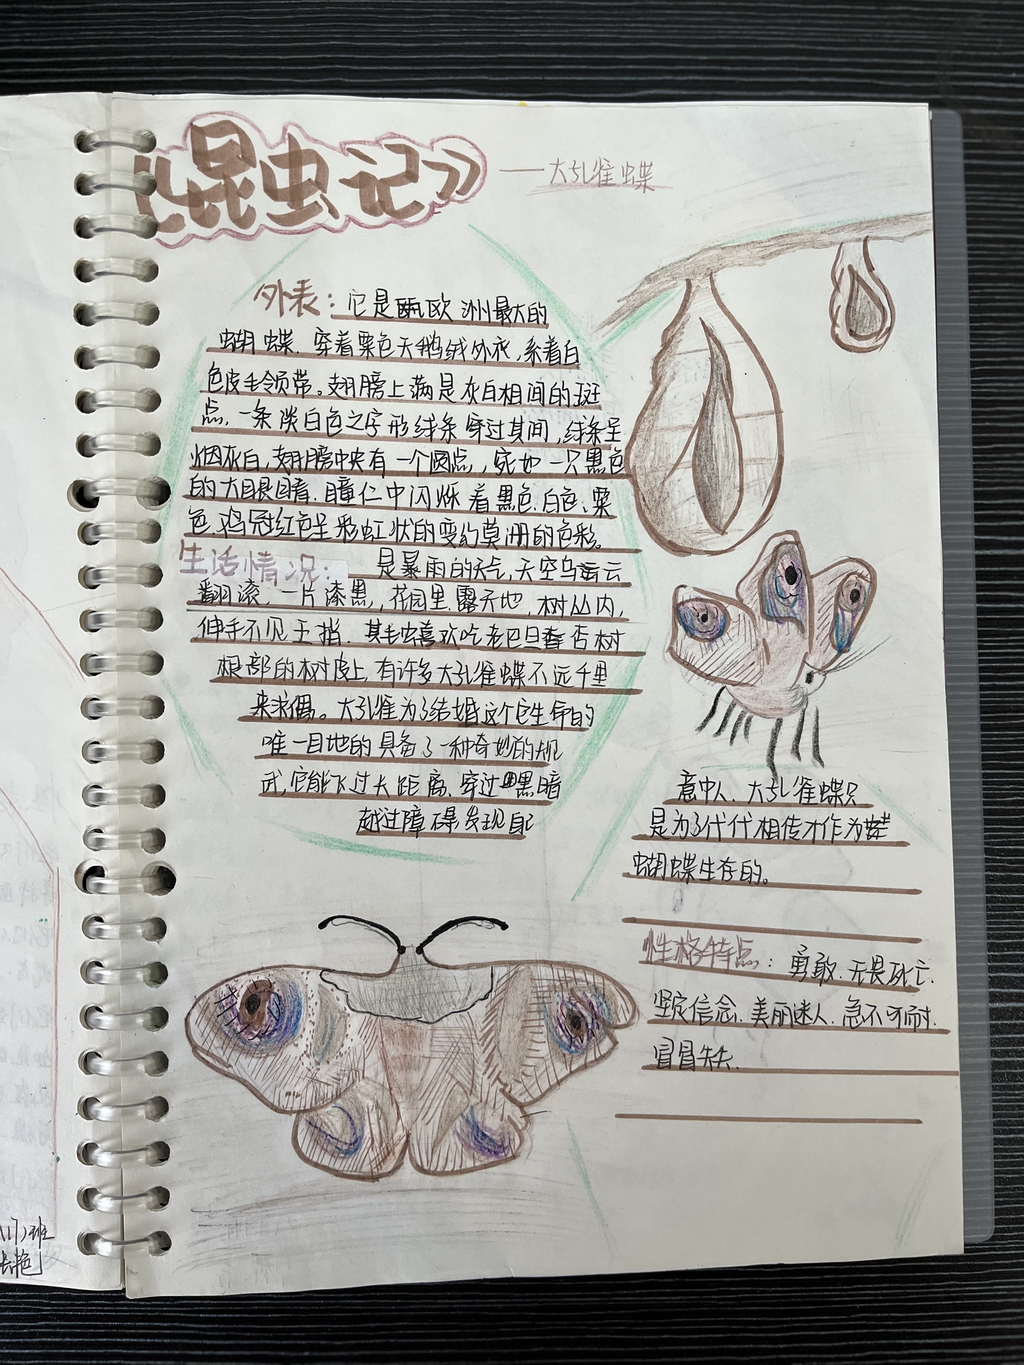 《昆虫记》
——大孔雀蝶
外表：它是欧洲最大的
蝴蝶，穿着栗色天鹅绒外衣，系着白
色皮毛领带。翅膀上满是灰白相间的斑
点，一条淡白色之字形线条穿过其间，线条呈
烟灰白，翅膀中央有一个圆点，宛如一只黑色
的大眼睛，瞳仁中闪烁着黑色、白色、栗
色、鸡冠红色呈彩虹状的变幻莫测的色彩。
生活情况：是暴雨的天气，天空乌云
翻滚，一片漆黑，花园里，露天地，树丛内，
伸手不见五指，其毛虫喜欢吃老巴旦杏树
根部的树皮上，有许多大孔雀蝶不远千里
来求偶。大孔雀为了结婚这个它生命的
唯一目地的具备了一种奇妙的机
武，它能飞过长距离，穿过黑暗
越过障碍，发现自己
意中人、大孔雀蝶只
是为了代代相传才作为
蝴蝶生存的。
性格特点：勇敢、无畏死亡、
坚定信念、美丽迷人、急不可耐、
冒冒失失
班